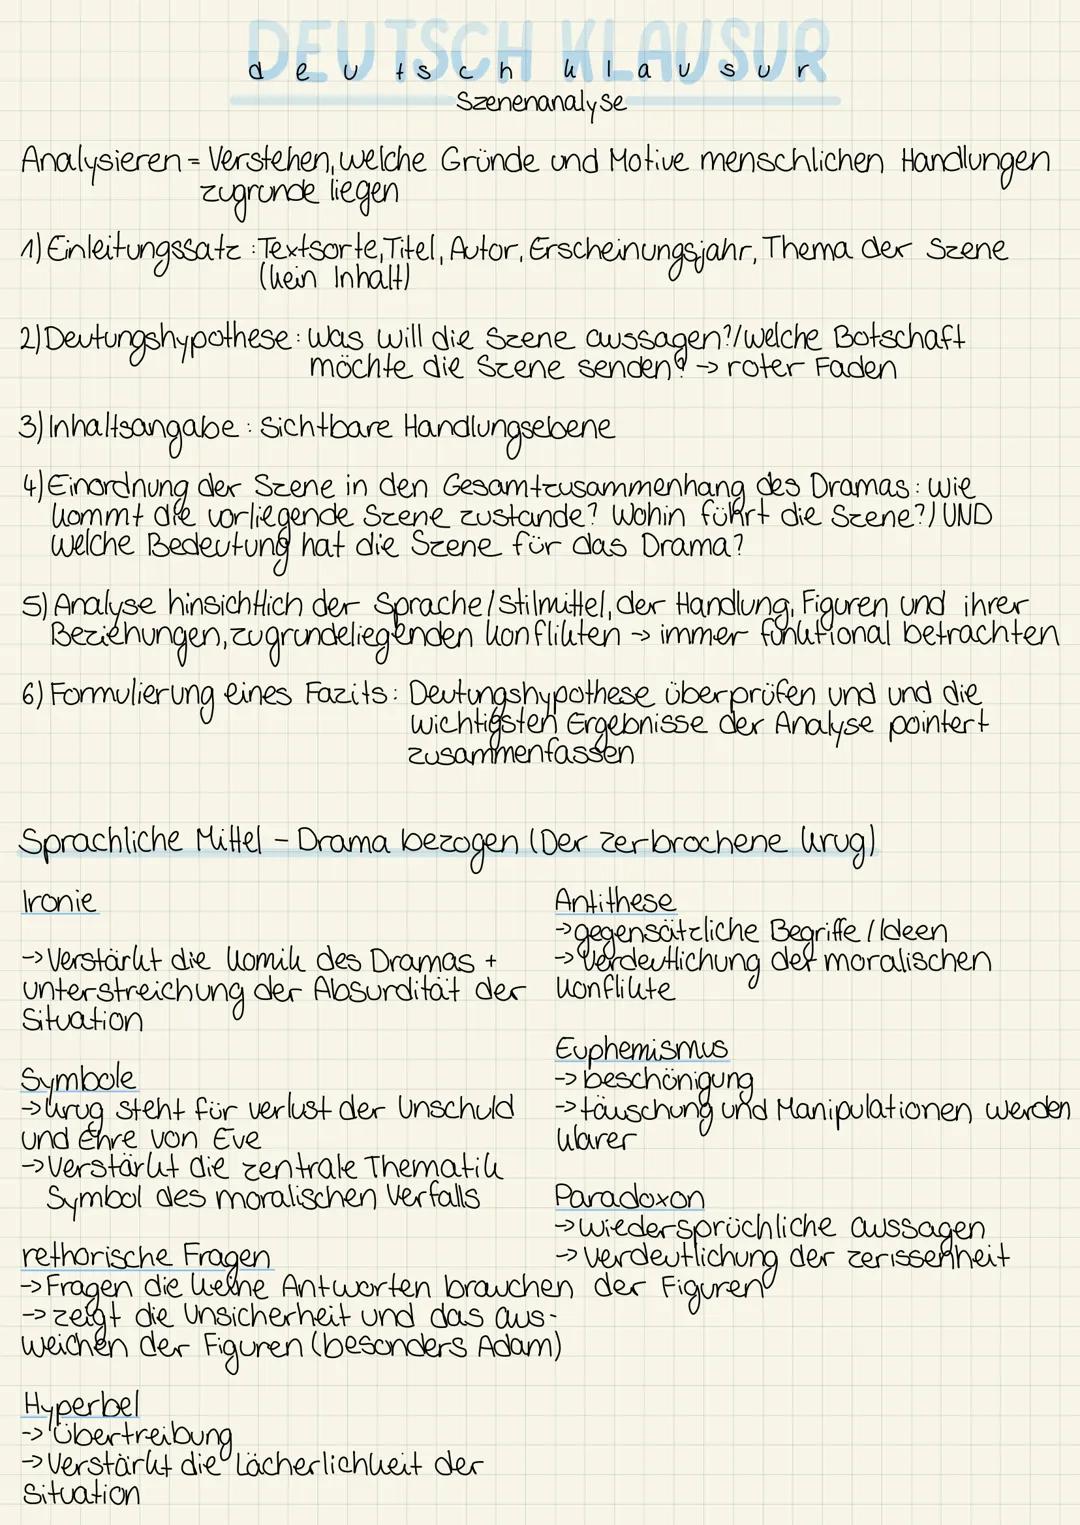 DEUTSCH KLAUSUR
deutsch klausur
Szenenanalyse
Analysieren = Verstehen, welche Gründe und Motive menschlichen Handlungen
zugrunde liegen
1) Einleitungssatz: Textsorte, Titel, Autor, Erscheinungsjahr, Thema der Szene
(kein Inhalt)
2) Deutungshypothese: Was will die Szene aussagen?/welche Botschaft
möchte die Szene senden? → roter Faden
3) Inhaltsangabe: Sichtbare Handlungsebene
4) Einordnung der Szene in den Gesamtzusammenhang des Dramas: Wie
kommt die vorliegende Szene zustande? Wohin führt die Szene?/ UND
Welche Bedeutung hat die Szene für das Drama?
5) Analyse hinsichtlich der Sprache/Stilmittel, der Handlung, Figuren und ihrer
Beziehungen, zugrundeliegenden Konflikten → immer funktional betrachten
6) Formulierung eines Fazits: Deutungshypothese überprüfen und und die
wichtigsten Ergebnisse der Analyse pointert
zusammenfassen
Sprachliche Mittel - Drama bezogen (Der zerbrochene Krug)
Ironie
→ Verstärkt die Komik des Dramas +
unterstreichung der Absurdität der
Situation
Symbole
→ Krug steht für verlust der Unschuld
und Ehre von Eve
→ Verstärkt die zentrale Thematik
Symbol des moralischen Verfalls
rethorische Fragen
→ Fragen die keine Antworten brauchen
→ zeigt die Unsicherheit und das aus-
weichen der Figuren (besonders Adam)
Hyperbel
→ Übertreibung
→ Verstärkt die Lächerlichkeit der
Situation
Antithese
→ gegensätzliche Begriffe / Ideen
→ Verdeutlichung der moralischen
Konflikte
Euphemismus
→ beschönigung
→ täuschung und Manipulationen werden
klarer
Paradoxon
→ wiedersprüchliche aussagen
→ Verdeutlichung der zerissenheit
der Figuren